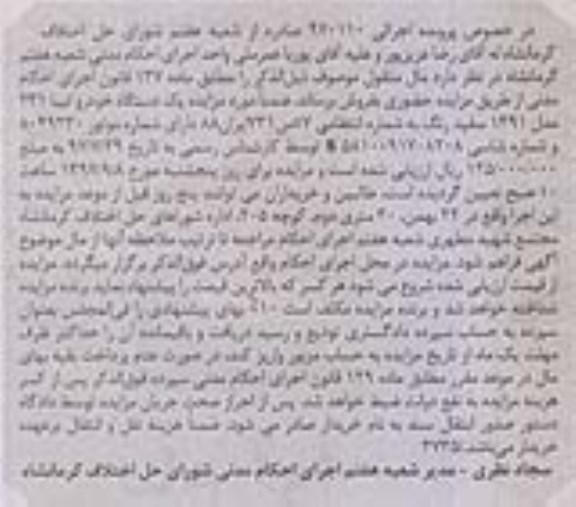 در خصوص پرونده اجرائی ۹۷۰۱۱۰ صادره از شعبه هفتم شورای حل اختلاف
کرمانشاه له آقای رضا عزیزپور و علیه آقای پوریا واحد اجرای احکام مدنی شعبه هفتم
کرمانشاه در نظر دارد مال منقول موصوف ذیل‌الذکر را مطابق ماده ۱۳۷ قانون اجرای احکام
مدنی از طریق مزایده حضوری بفروش برساند. ضمناً مورد مزایده یک دستگاه خودرو تیبا ۲۳۱
مدل ۱۳۹۱ سفید رنگ به شماره انتظامی ایران۸۸ دارای شماره موتور
و شماره شاسی توسط کارشناس رسمی به تاریخ به مبلغ
ریال ارزیابی شده است و مزایده برای روز پنجشنبه مورخ ۱۳۹۷/۹/۸ ساعت
۱۰ صبح تعیین گردیده است. طالبین و خریداران می توانند پنج روز قبل از موعد مزایده به
این اجرا واقع در ۲۲ بهمن، ۲۰ متری دوم، کوچه ۲۰۵، اداره شوراهای حل اختلاف کرمانشاه
مجتمع شهید مطهری شعبه هفتم اجرای احکام مراجعه تا ترتیب ملاحظه آنها از مال موضوع
آگهی فراهم شود. مزایده در محل اجرای احکام واقع آدرس فوق‌الذکر برگزار میگردد. مزایده
از قیمت ارزیابی شده شروع می شود هر کسی که بالاترین قیمت را پیشنهاد نماید برنده مزایده
شناخته خواهد شد و برنده مزایده مکلف است ۱۰٪ بهای پیشنهادی را فی‌المجلس بعنوان
سپرده به حساب سپرده دادگستری تودیع و رسید دریافت و باقیمانده آن را حداکثر ظرف
مهلت یک ماه از تاریخ مزایده به حساب مزبور واریز کند، در صورت عدم پرداخت بقیه بهای
مال در موعد مقرر مطابق ماده ۱۲۹ قانون اجرای احکام مدنی سپرده فوق‌الذکر پس از کسر
هزینه مزایده به نفع دولت ضبط خواهد شد. پس از احراز صحت جریان مزایده توسط دادگاه
دستور صدور انتقال سند به نام خریدار صادر می شود. ضمناً هزینه نقل و انتقال برعهده
خریدار می‌باشد.
سجاد نظری - مدیر شعبه هفتم اجرای احکام مدنی شورای حل اختلاف کرمانشاه